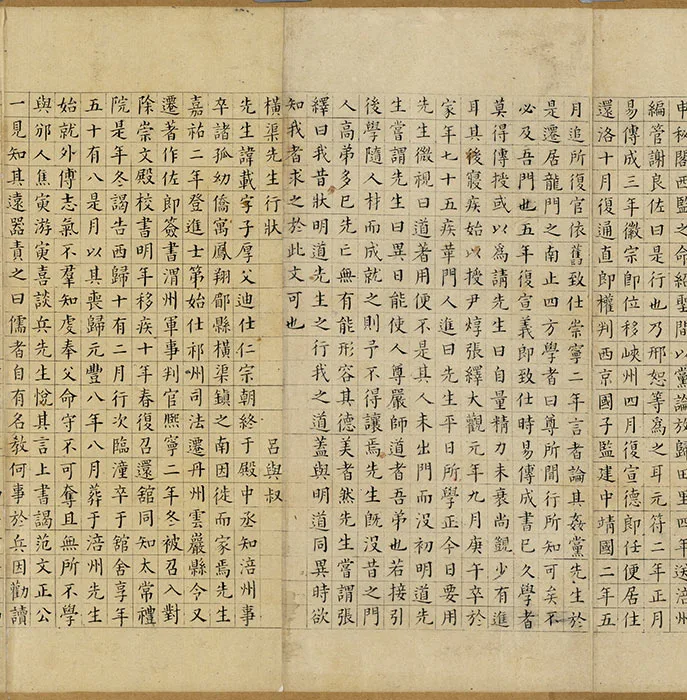 申秘閣西監之命紹聖間以黨論放歸田里四年送涪州
編管謝良佐曰是行也乃邢恕等為之耳元符二年正月
易傳成三年徽宗即位移峽州四月復宣德郎任便居住
還洛十月復通直郎權判西京國子監建中靖國二年五
月追所復官依舊致仕崇寧二年言者論其姦黨先生於
是遷居龍門之南止四方學者曰尊所聞行所知可矣不
必及吾門也五年復宣義郎致仕時易傳成書已久學者
莫得傳授或以為請先生曰自量精力未衰尚覬少有進
耳其後寢疾始以授尹焞張繹大觀元年九月庚午卒於
家年七十五疾革門人進曰先生平日所學正今日要用
先生微視曰道著用便不是其人未出門而沒初明道先
生嘗謂先生曰異日能使人尊嚴師道者吾弟也若接引
後學隨人材而成就之則予不得讓焉先生既沒昔之門
人高弟多已先亡無有能形容其德美者然先生嘗謂張
繹曰我昔狀明道先生之行我之道蓋與明道同異時欲
知我者求之於此文可也
橫渠先生行狀 呂與叔
先生諱載字子厚父迪仕仁宗朝終于殿中丞知涪州事
卒諸孤幼僑寓鳳翔郿縣橫渠鎮之南因徙而家焉先生
嘉祐二年登進士第始仕祁州司法遷丹州雲巖縣令又
遷著作佐郎簽書渭州軍事判官熙寧二年冬被召入對
除崇文殿校書明年移疾十年春復召還館同知太常禮
院是年冬謁告西歸十有二月行次臨潼卒于館舍享年
五十有八是月以其喪歸元豐八年八月葬于涪州先生
始就外傅志氣不羣知虔奉父命守不可奪且無所不學
與邠人焦寅游寅喜談兵先生悅其言上書謁范文正公
一見知其遠器責之曰儒者自有名教何事於兵因勸讀